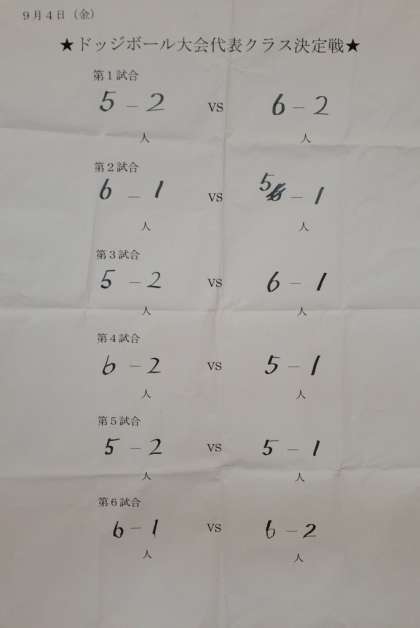 9月4日（金）
★ドッジボール大会代表クラス決定戦★
第1試合
5－2 VS 6－2
人 人
第2試合
6－1 VS 5－1
人 人
第3試合
5－2 VS 6－1
人 人
第4試合
6－2 VS 5－1
人 人
第5試合
5－2 VS 5－1
人 人
第6試合
6－1 VS 6－2
人 人